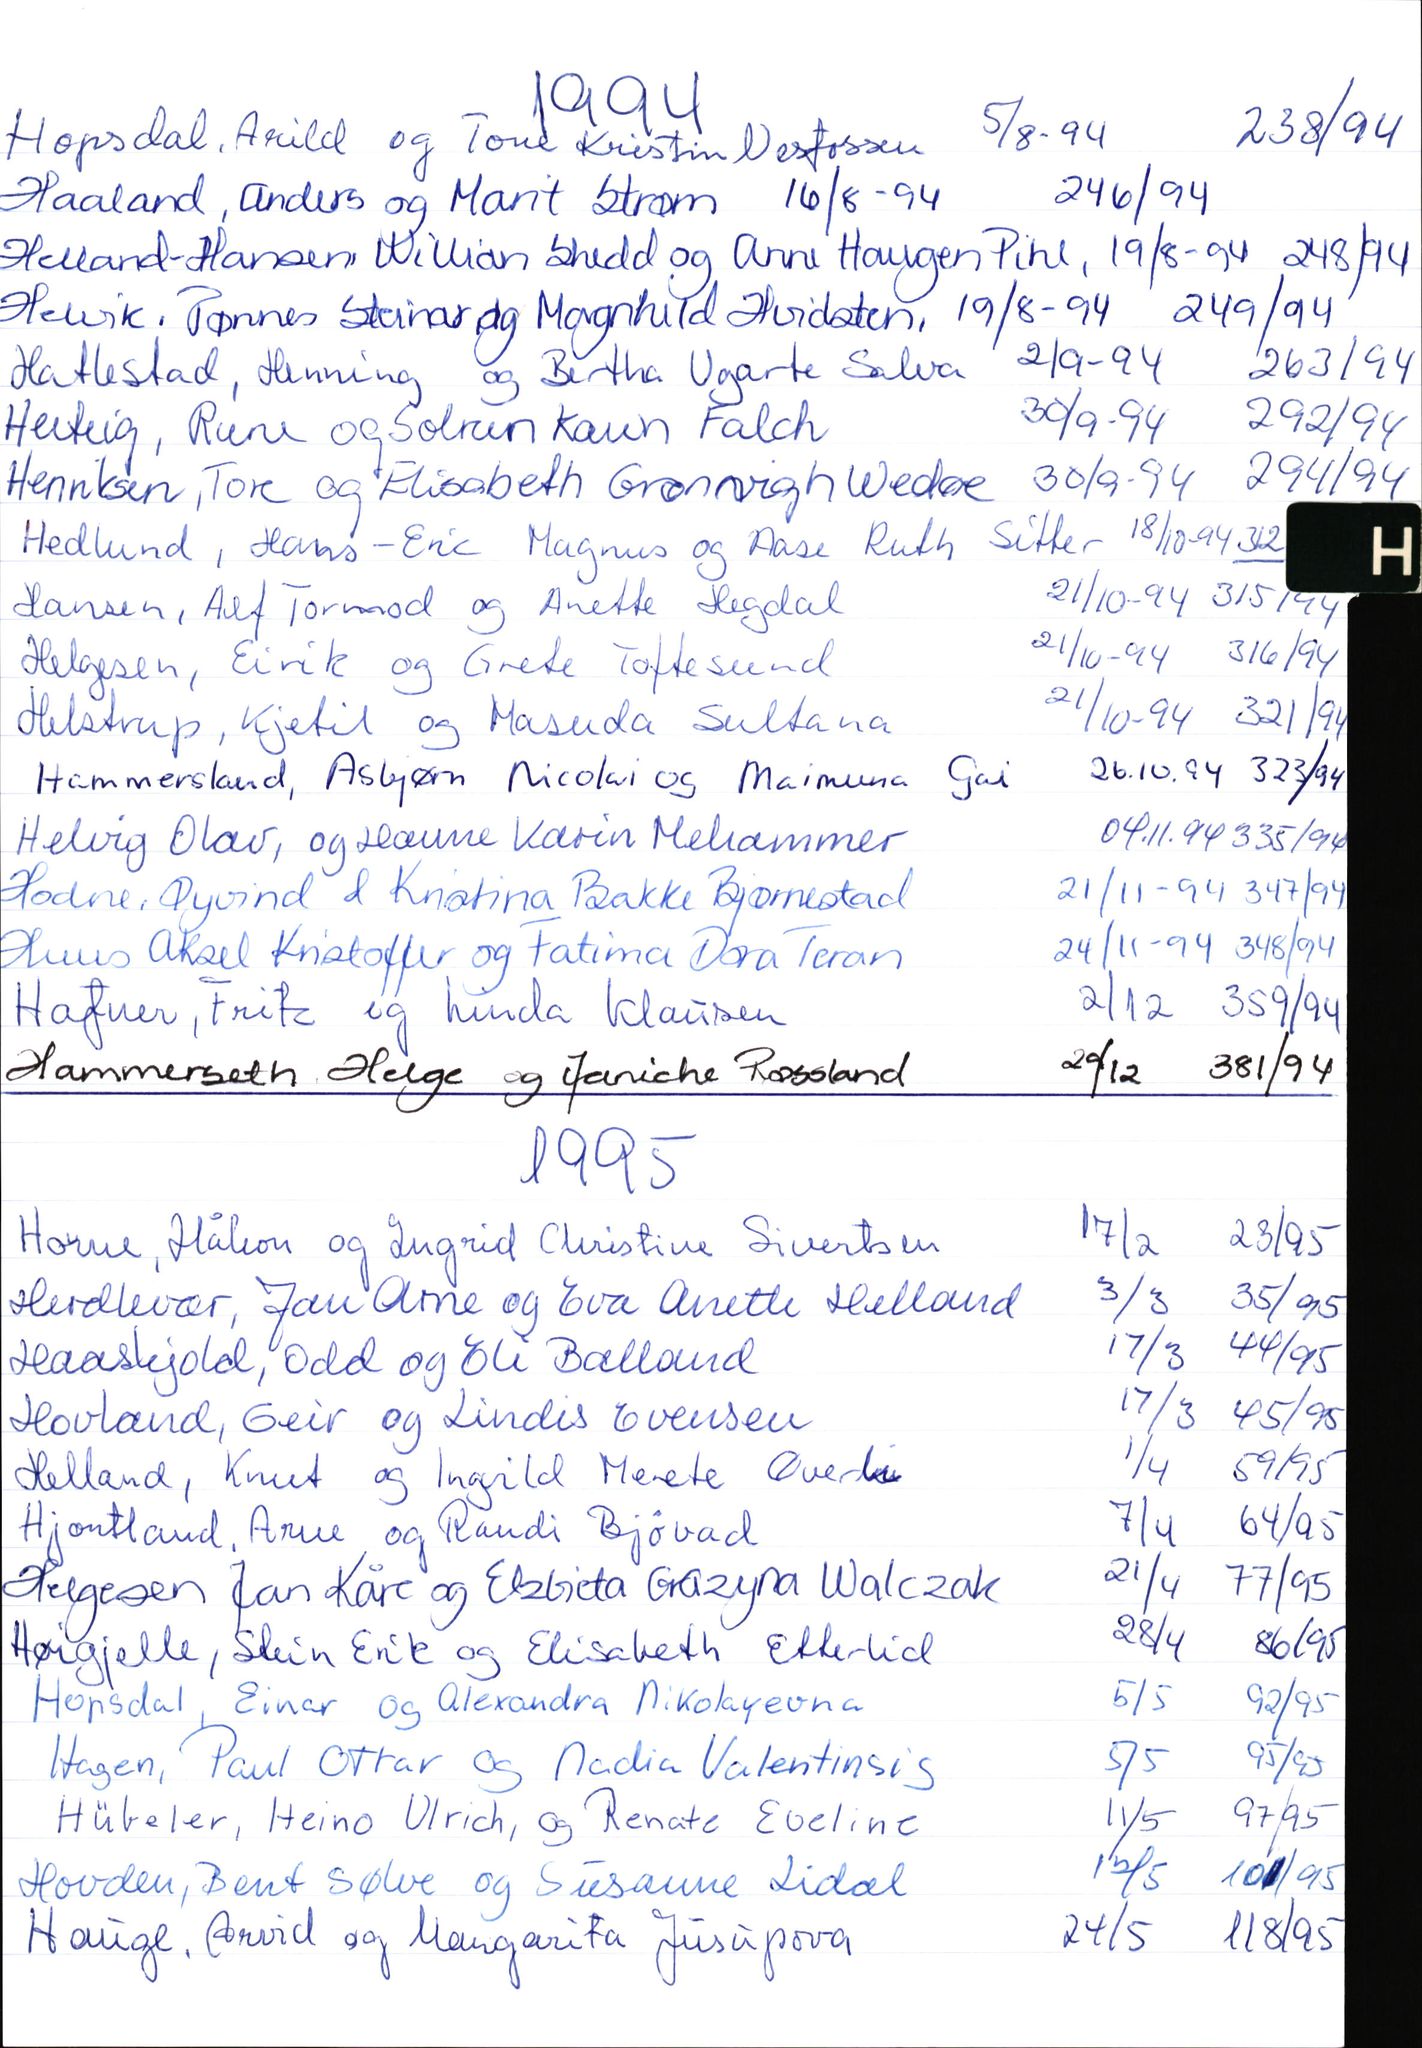 1994
Hopsdal, Arild og Tone Kristin Vestfossen 5/8-94 238/94
Haaland, Anders og Marit Strøm 16/8-94 246/94
Helland-Hansen, William Shedd og Anne Haugen Pihl, 19/8-94 248/94
Helvik, Tønnes Steinar og Magnhild Hvidsten, 19/8-94 249/94
Hatlestad, Henning og Bertha Ugarte Salva 2/9-94 263/94
Hertvig, Rune og Solrun Kaun Falch 30/9-94 292/94
Henriksen, Tore og Elisabeth Grønnvigh Wedøe 30/9-94 294/94
Hedlund, Hans-Eric Magnus og Aase Ruth Sitter 18/10-94 312
H
Hansen, Alf Tormod og Anette Hegdal 21/10-94 315/94
Helgesen, Eirik og Grete Toftesund 21/10-94 316/94
Helstrup, Kjetil og Masuda Sultana 21/10-94 321/94
Hammersland, Asbjørn Nicolai og Maimuna Gai 26.10.94 323/94
Helvig Olav, og Hanne Karin Mehammer 04.11.94 335/94
Hodne, Øyvind & Kristina Bakke Bjørnestad 21/11-94 347/94
Huus Aksel Kristoffer og Fatima Dora Teran 24/11-94 348/94
Hafner, Fritz og Linda Klausen 2/12 359/94
Hammerseth Helge og Janiche Røssland 29/12 381/94
1995
Horne, Håkon og Ingrid Christine Sivertsen 17/2 23/95
Herdlevær, Jan Arne og Eva Anette Helland 3/3 35/95
Haaskjold, Odd og Eli Balland 17/3 44/95
Hovland, Geir og Lindis Evensen 17/3 45/95
Helland, Knut og Ingvild Merete Øverli 1/4 59/95
Hjortland, Arne og Randi Bjövad 7/4 64/95
Helgesen Jan Kåre og Elzbieta Grazyna Walczak 21/4 77/95
Høigjelle, Stein Erik og Elisabeth Etterlid 28/4 86/95
Hopsdal, Einar og Alexandra Nikolayevna 5/5 92/95
Hagen, Paul Ottar og Nadia Valentinsig 5/5 95/95
Hübeler, Heino Ulrich, og Renate Eveline 11/5 97/95
Hovden, Bent Sølve og Susanne Lidal 12/5 101/95
Hauge, Arvid og Mangarita Jusupova 24/5 118/95